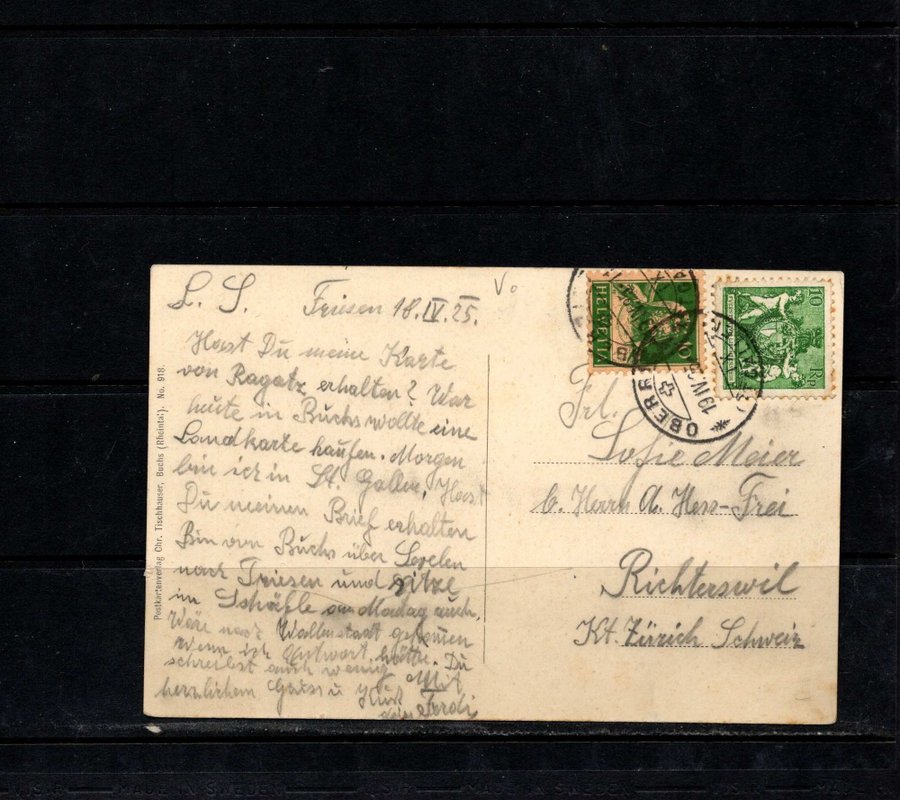 L. S. Triesen 18.IV.25.
Hast Du meine Karte
von Ragatz erhalten? War
heute in Buchs wollte eine
Landkarte kaufen. Morgen
bin ich in St. Gallen, Hast
Du meinen Brief erhalten
Bin von Buchs über Sevelen
nach Triesen und sitze
im Schäfle am Montag auch.
Wäre nach Wallenstadt gekommen
wenn ich Antwort hätte. Du
schreibst auch wenig. Mit
herzlichem Gruss u Kuss
dein Ferdi
Vo
Frl.
Sofie Meier
b. Herrn A. Hess-Frei
Richterswil
Kt. Zürich Schweiz
HELVETIA
10
10 Rp
OBERR
19 IV
Postkartenverlag Chr. Tischhauser, Buchs (Rheintal). No. 918.
MADE IN SWEDEN